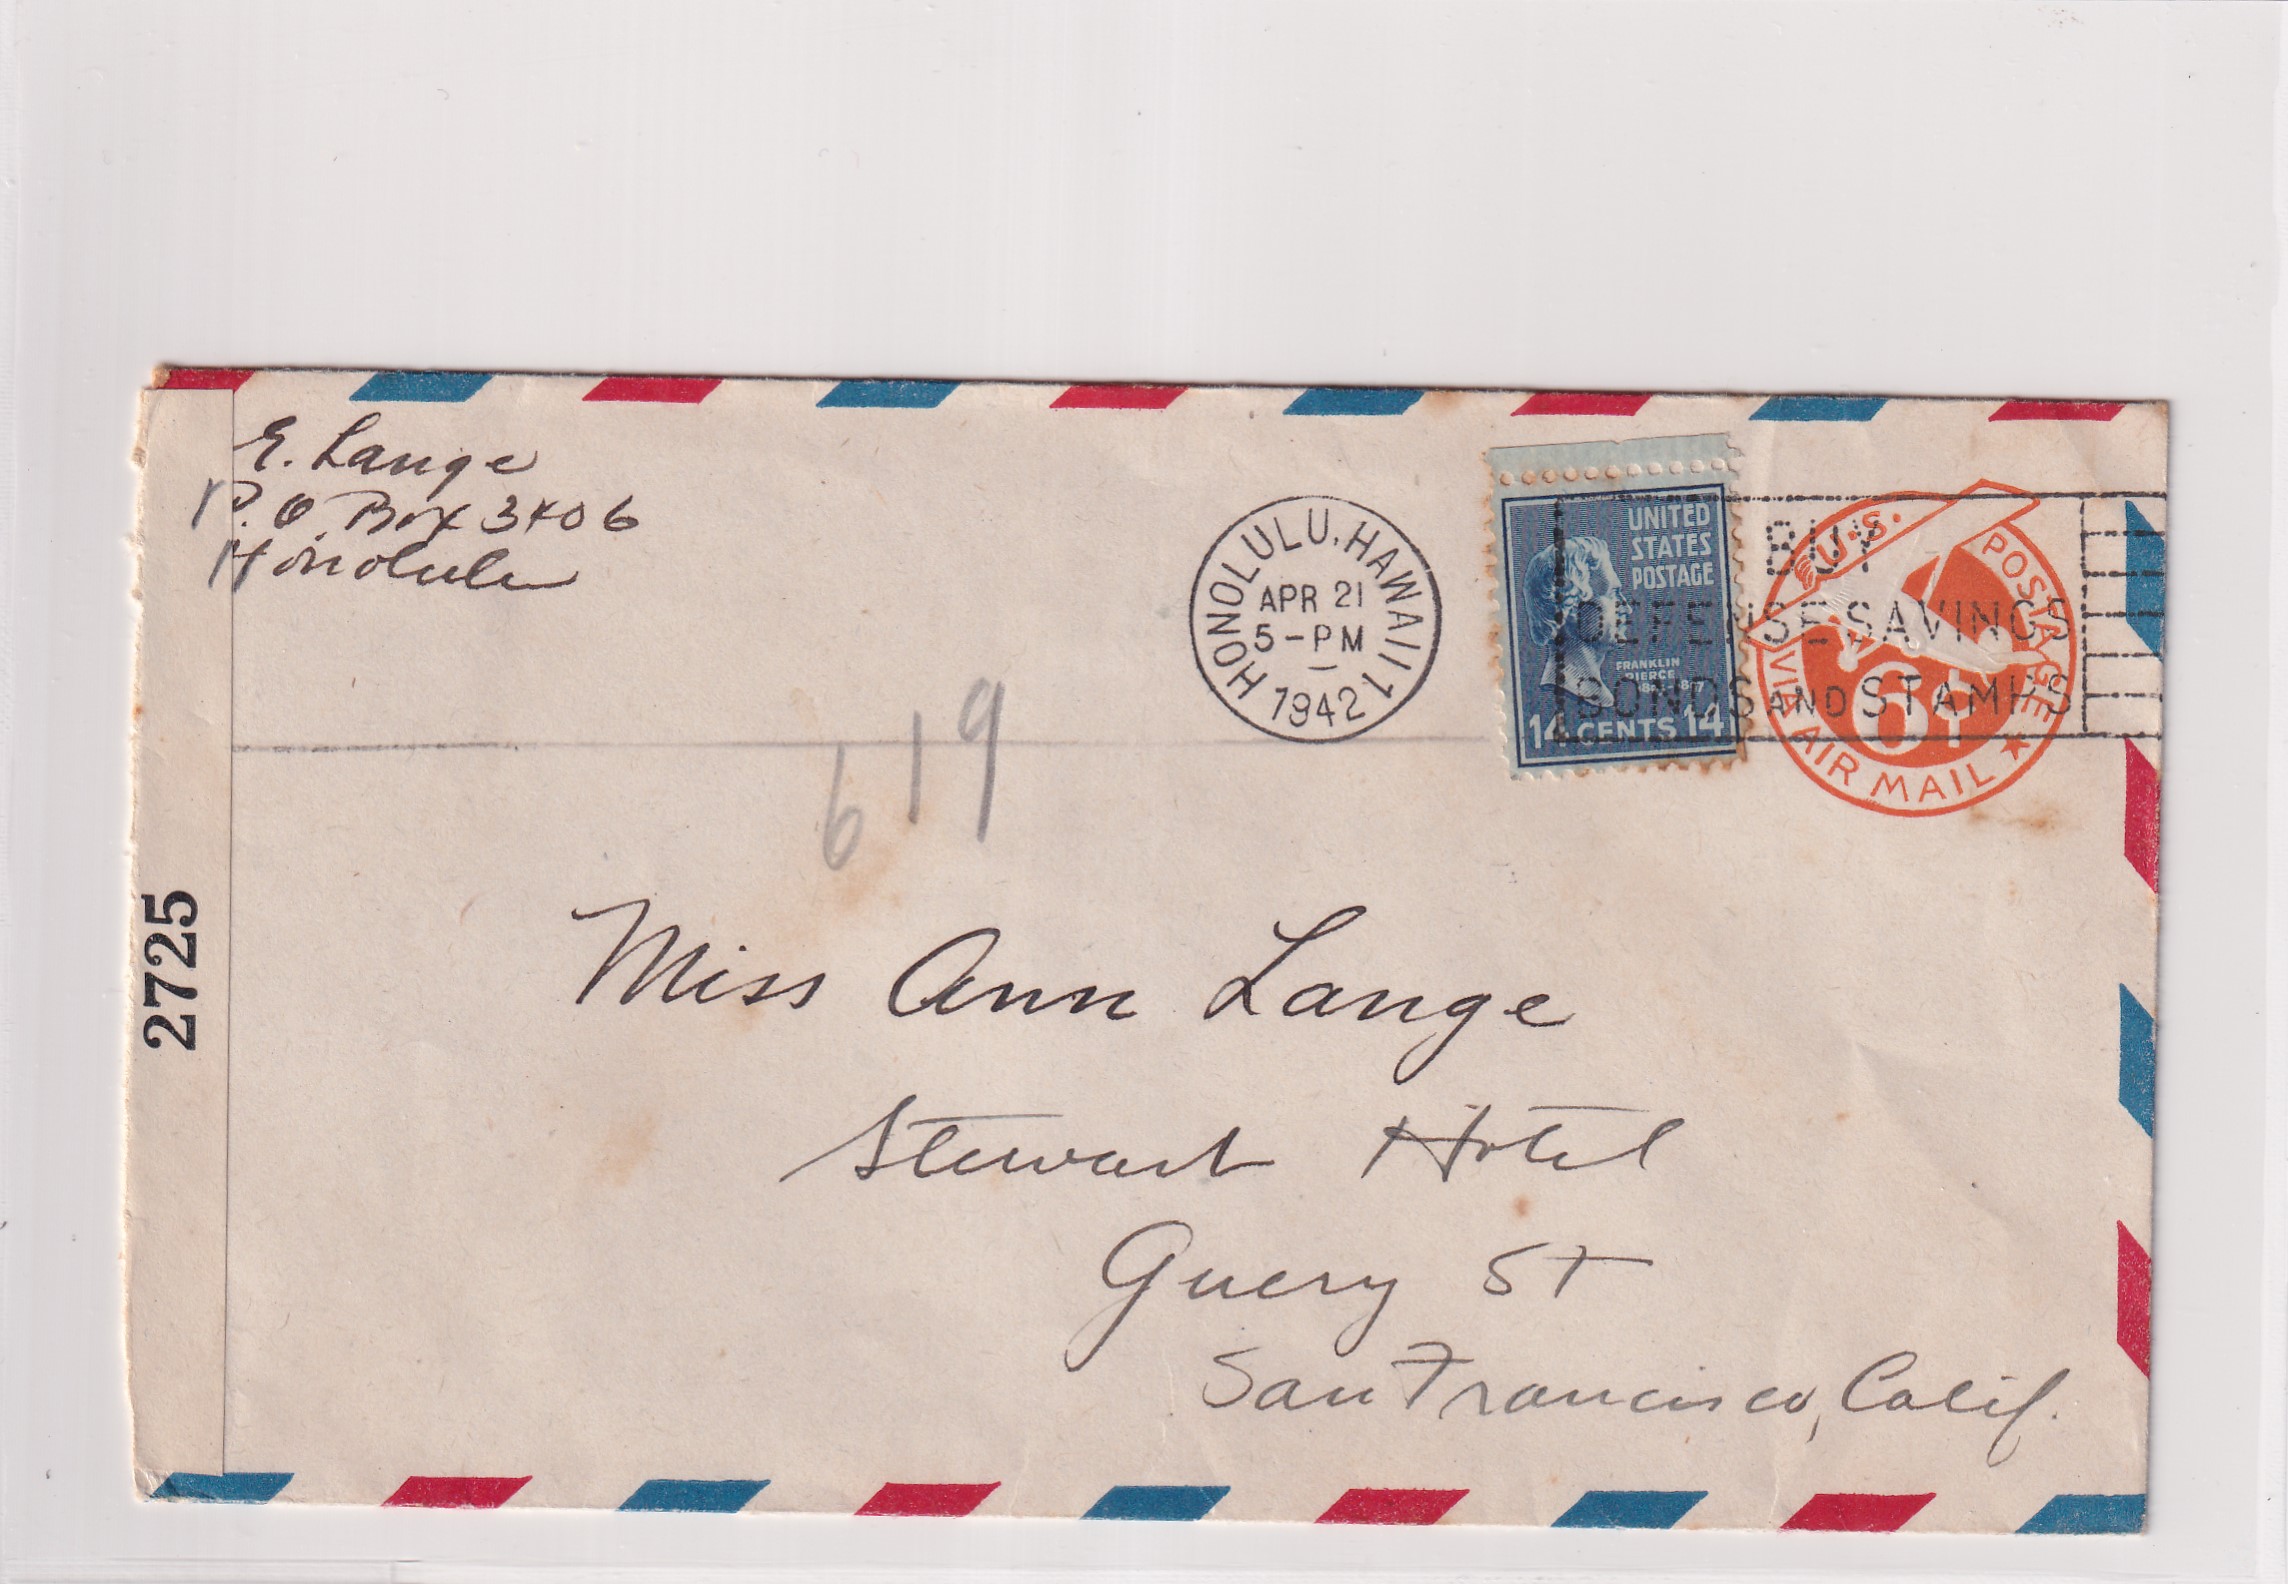 E. Lange
P.O. Box 3406
Honolulu
HONOLULU, HAWAII 1
APR 21
5-PM
1942
UNITED
STATES
POSTAGE
FRANKLIN
PIERCE
14 CENTS 14
BUY
DEFENSE SAVINGS
BONDS AND STAMPS
U.S. POSTAGE
6¢
VIA AIR MAIL
619
2725
Miss Ann Lange
Stewart Hotel
Guery St
San Francisco, Calif.